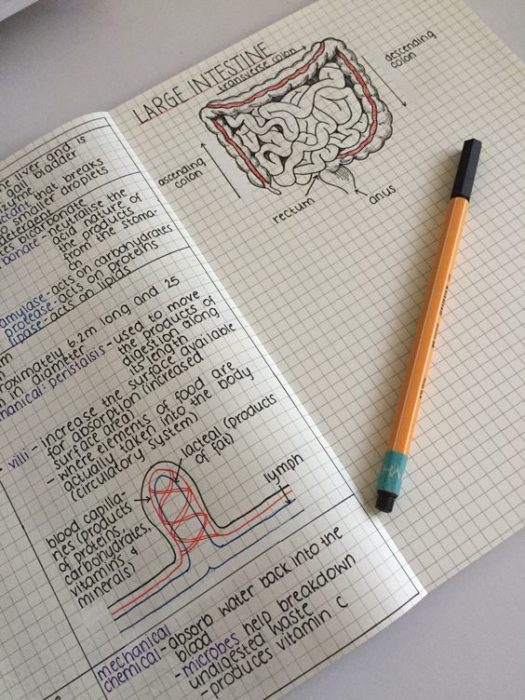 LARGE INTESTINE
transverse colon
descending colon
ascending colon
rectum
anus
the liver and is
gall bladder
enzyme
that breaks
smaller droplets
bicarbonate
neutralise the
acid nature of
the products
from the stoma-
ch
amylase - acts on carbohydrates
protease - acts on proteins
lipase - acts on lipids
6.2m long and 25
in diameter
peristalsis - used to move
the products of
digestion along
its length
villi - increase the surface available
for absorption (increased
surface area)
- where elements of food are
actually taken into the body
(circulatory system)
lacteal (products
of fat)
lymph
blood capilla-
ries (products
of proteins,
carbohydrates,
vitamins &
minerals)
mechanical
chemical - absorb water back into the
blood
- microbes help breakdown
undigested waste
- produces vitamin C